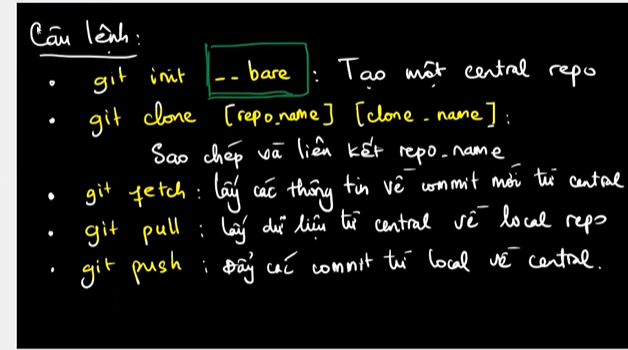 Câu lệnh:
• git init --bare : Tạo một central repo
• git clone [repo_name] [clone_name] :
Sao chép và liên kết repo_name
• git fetch : lấy các thông tin về commit mới từ central
• git pull : lấy dữ liệu từ central về local repo
• git push : Đẩy các commit từ local về central.